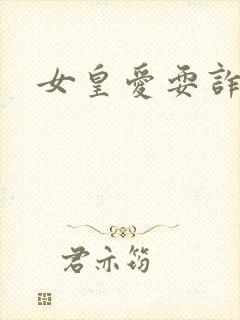 女皇愛耍詐
君亦笏